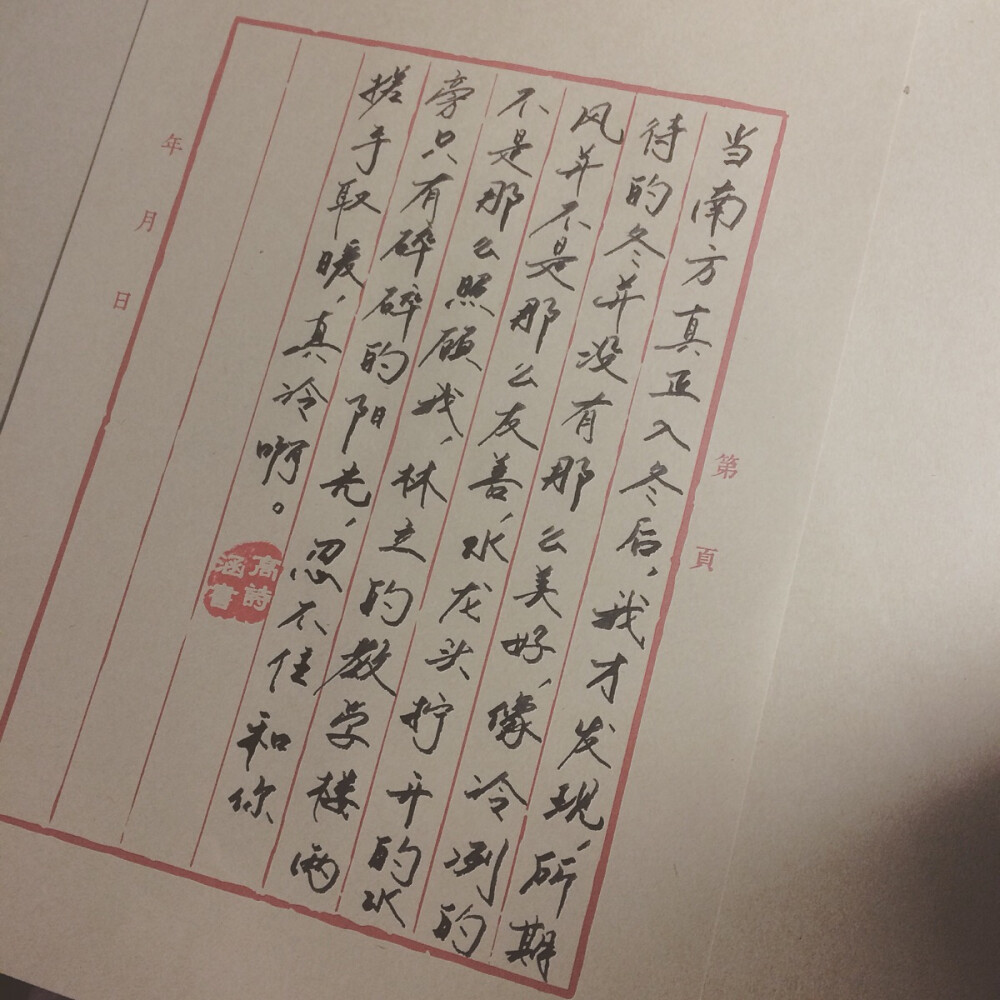 第 頁
当南方真正入冬后，我才发现，所期
待的冬并没有那么美好，像冷冽的
风并不是那么友善，水龙头拧开的水
不是那么照顾我，林立的教学楼两
旁只有碎碎的阳光，忍不住和你
搓手取暖，真冷啊。
高詩
涵書
年 月 日